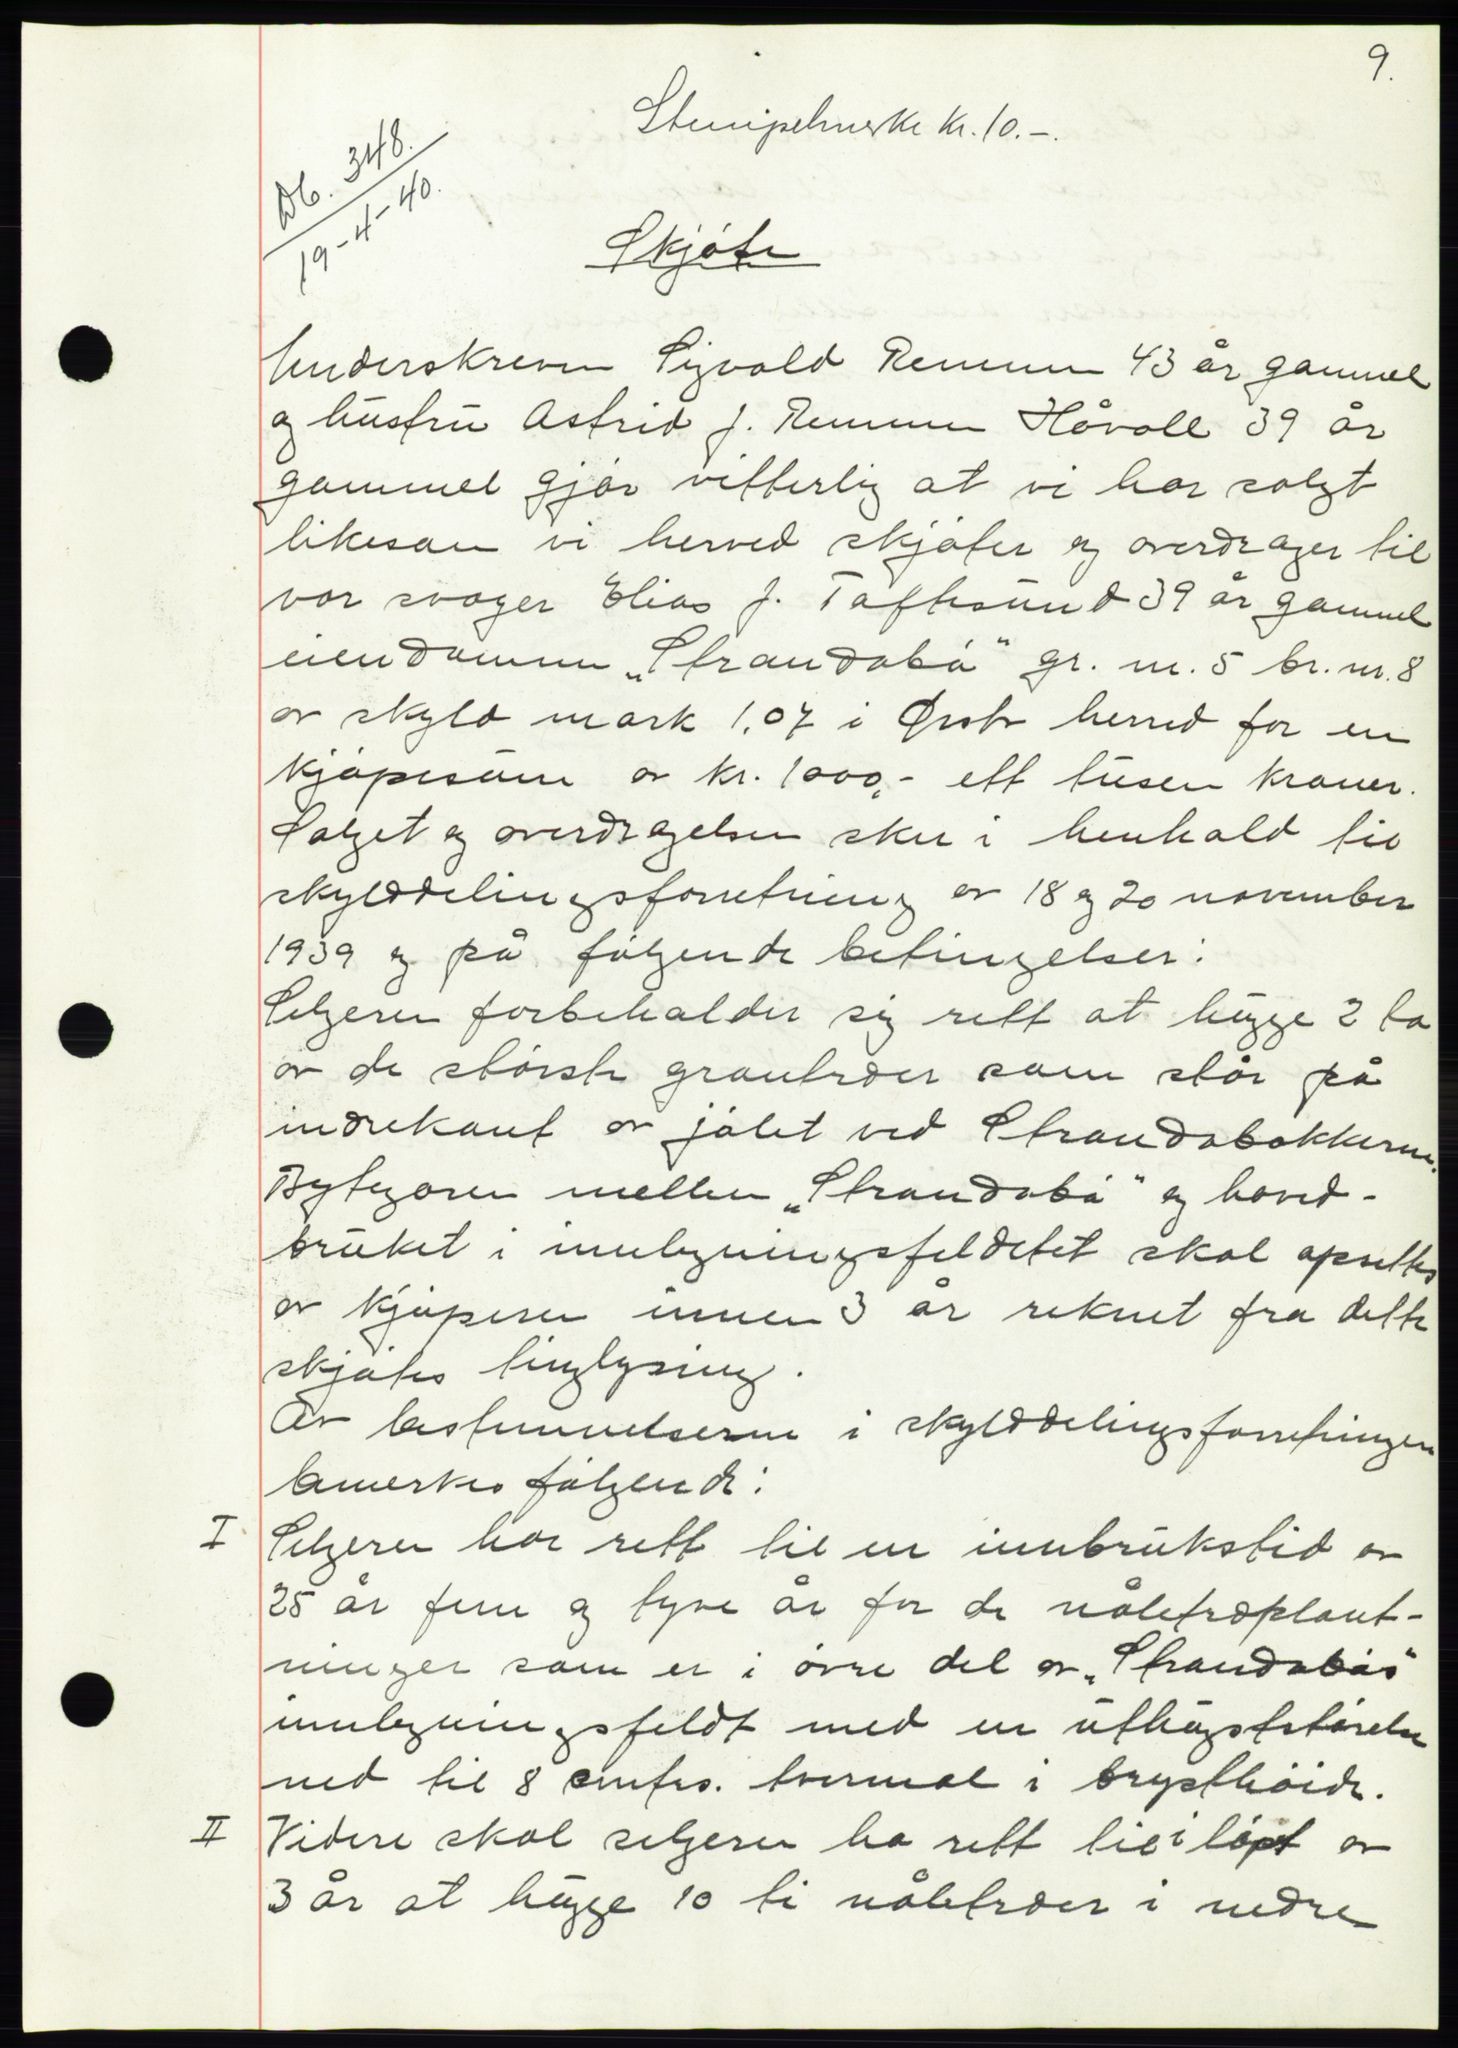 9.
Stempelmerke kr. 10.-.
Db. 348.
19-4-40.
Skjøte
Underskreven Sigvald Remmen 43 år gammel
og hustru Astrid J. Remmen Håvoll 39 år
gammel gjør vitterlig at vi har solgt
likesom vi herved skjøter og overdrager til
vor svoger Elias J. Taftesund 39 år gammel
eiendommen „Strandabø" gr. nr. 5 br. nr. 8
av skyld mark 1,07 i Ørsta herred for en
kjøpesum av kr. 1000,- ett tusen kroner.
Salget og overdragelsen sker i henhold til
skylddelingsforretning av 18 og 20 november
1939 og på følgende betingelser:
Selgeren forbeholder sig rett at hugge 2 to
av de største grantrær som står på
indrekant av jølet ved Strandabakkerne.
Bytegaren mellem „Strandabø" og hoved-
bruket i innlegningsfeldtet skal opsettes
av kjøperen innen 3 år reknet fra dette
skjøtes tinglysing.
Av bestemmelserne i skylddelingsforretningen
bemerkes følgende:
I Selgeren har rett til en innbrukstid av
25 år fem og tyve år for de nåletræplant-
ninger som er i øvre del av „Strandabøs"
innlegningsfeldt med en uthugststørelse
ned til 8 centrs. tvermål i brysthøide.
II Videre skal selgeren ha rett til i løpet av
3 år at hugge 10 ti nåletrær i nedre